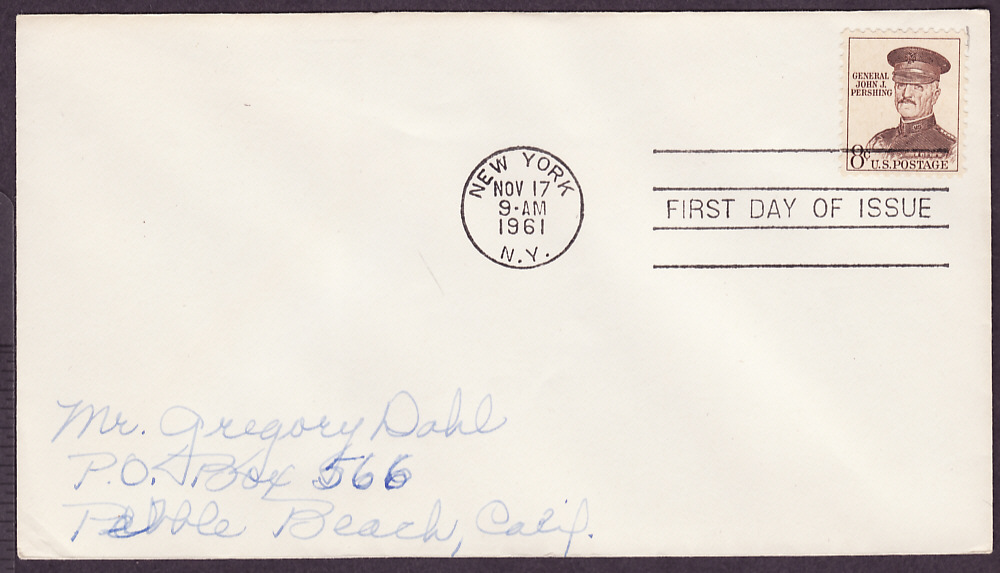 GENERAL
JOHN J.
PERSHING
8c U.S. POSTAGE
NEW YORK
NOV 17
9-AM
1961
N.Y.
FIRST DAY OF ISSUE
Mr. Gregory Dahl
P.O. Box 566
Pebble Beach, Calif.